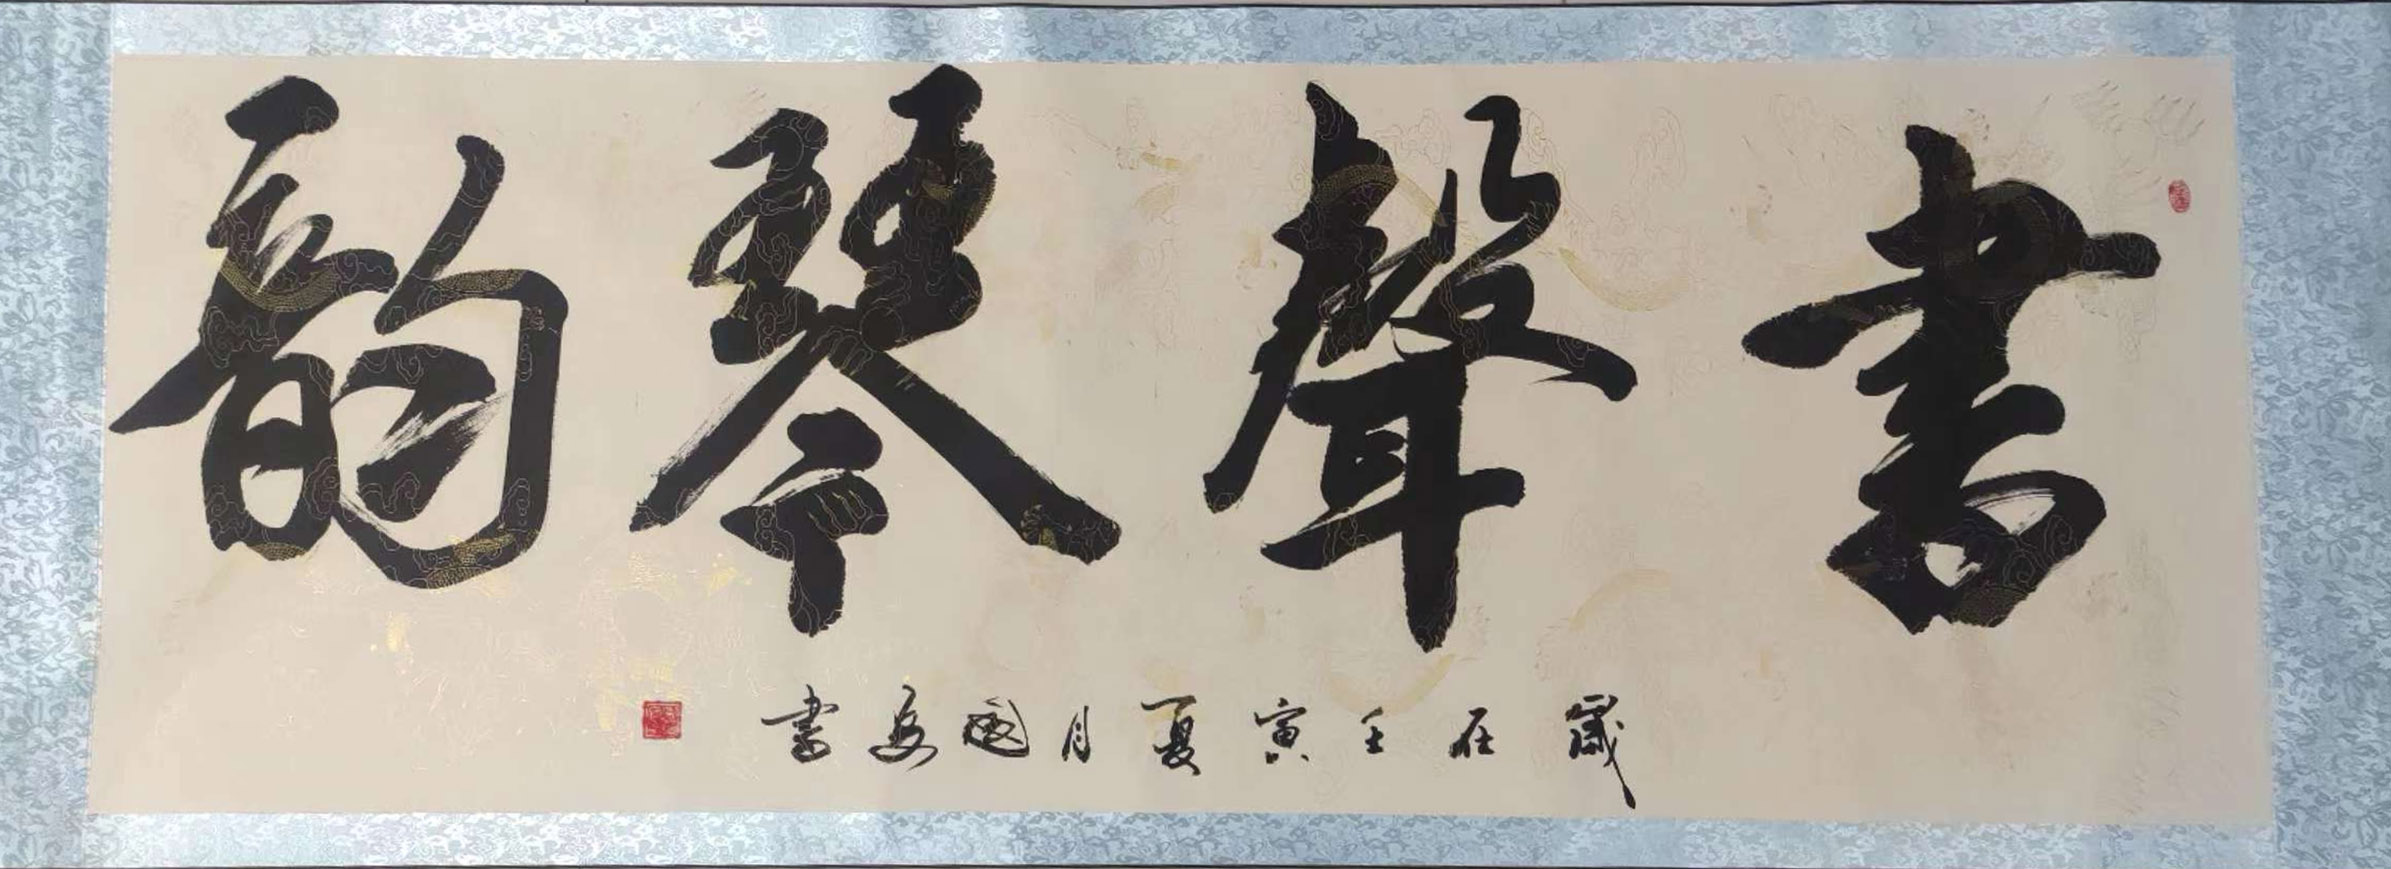 書聲琴韻
歲在壬寅夏月國安書